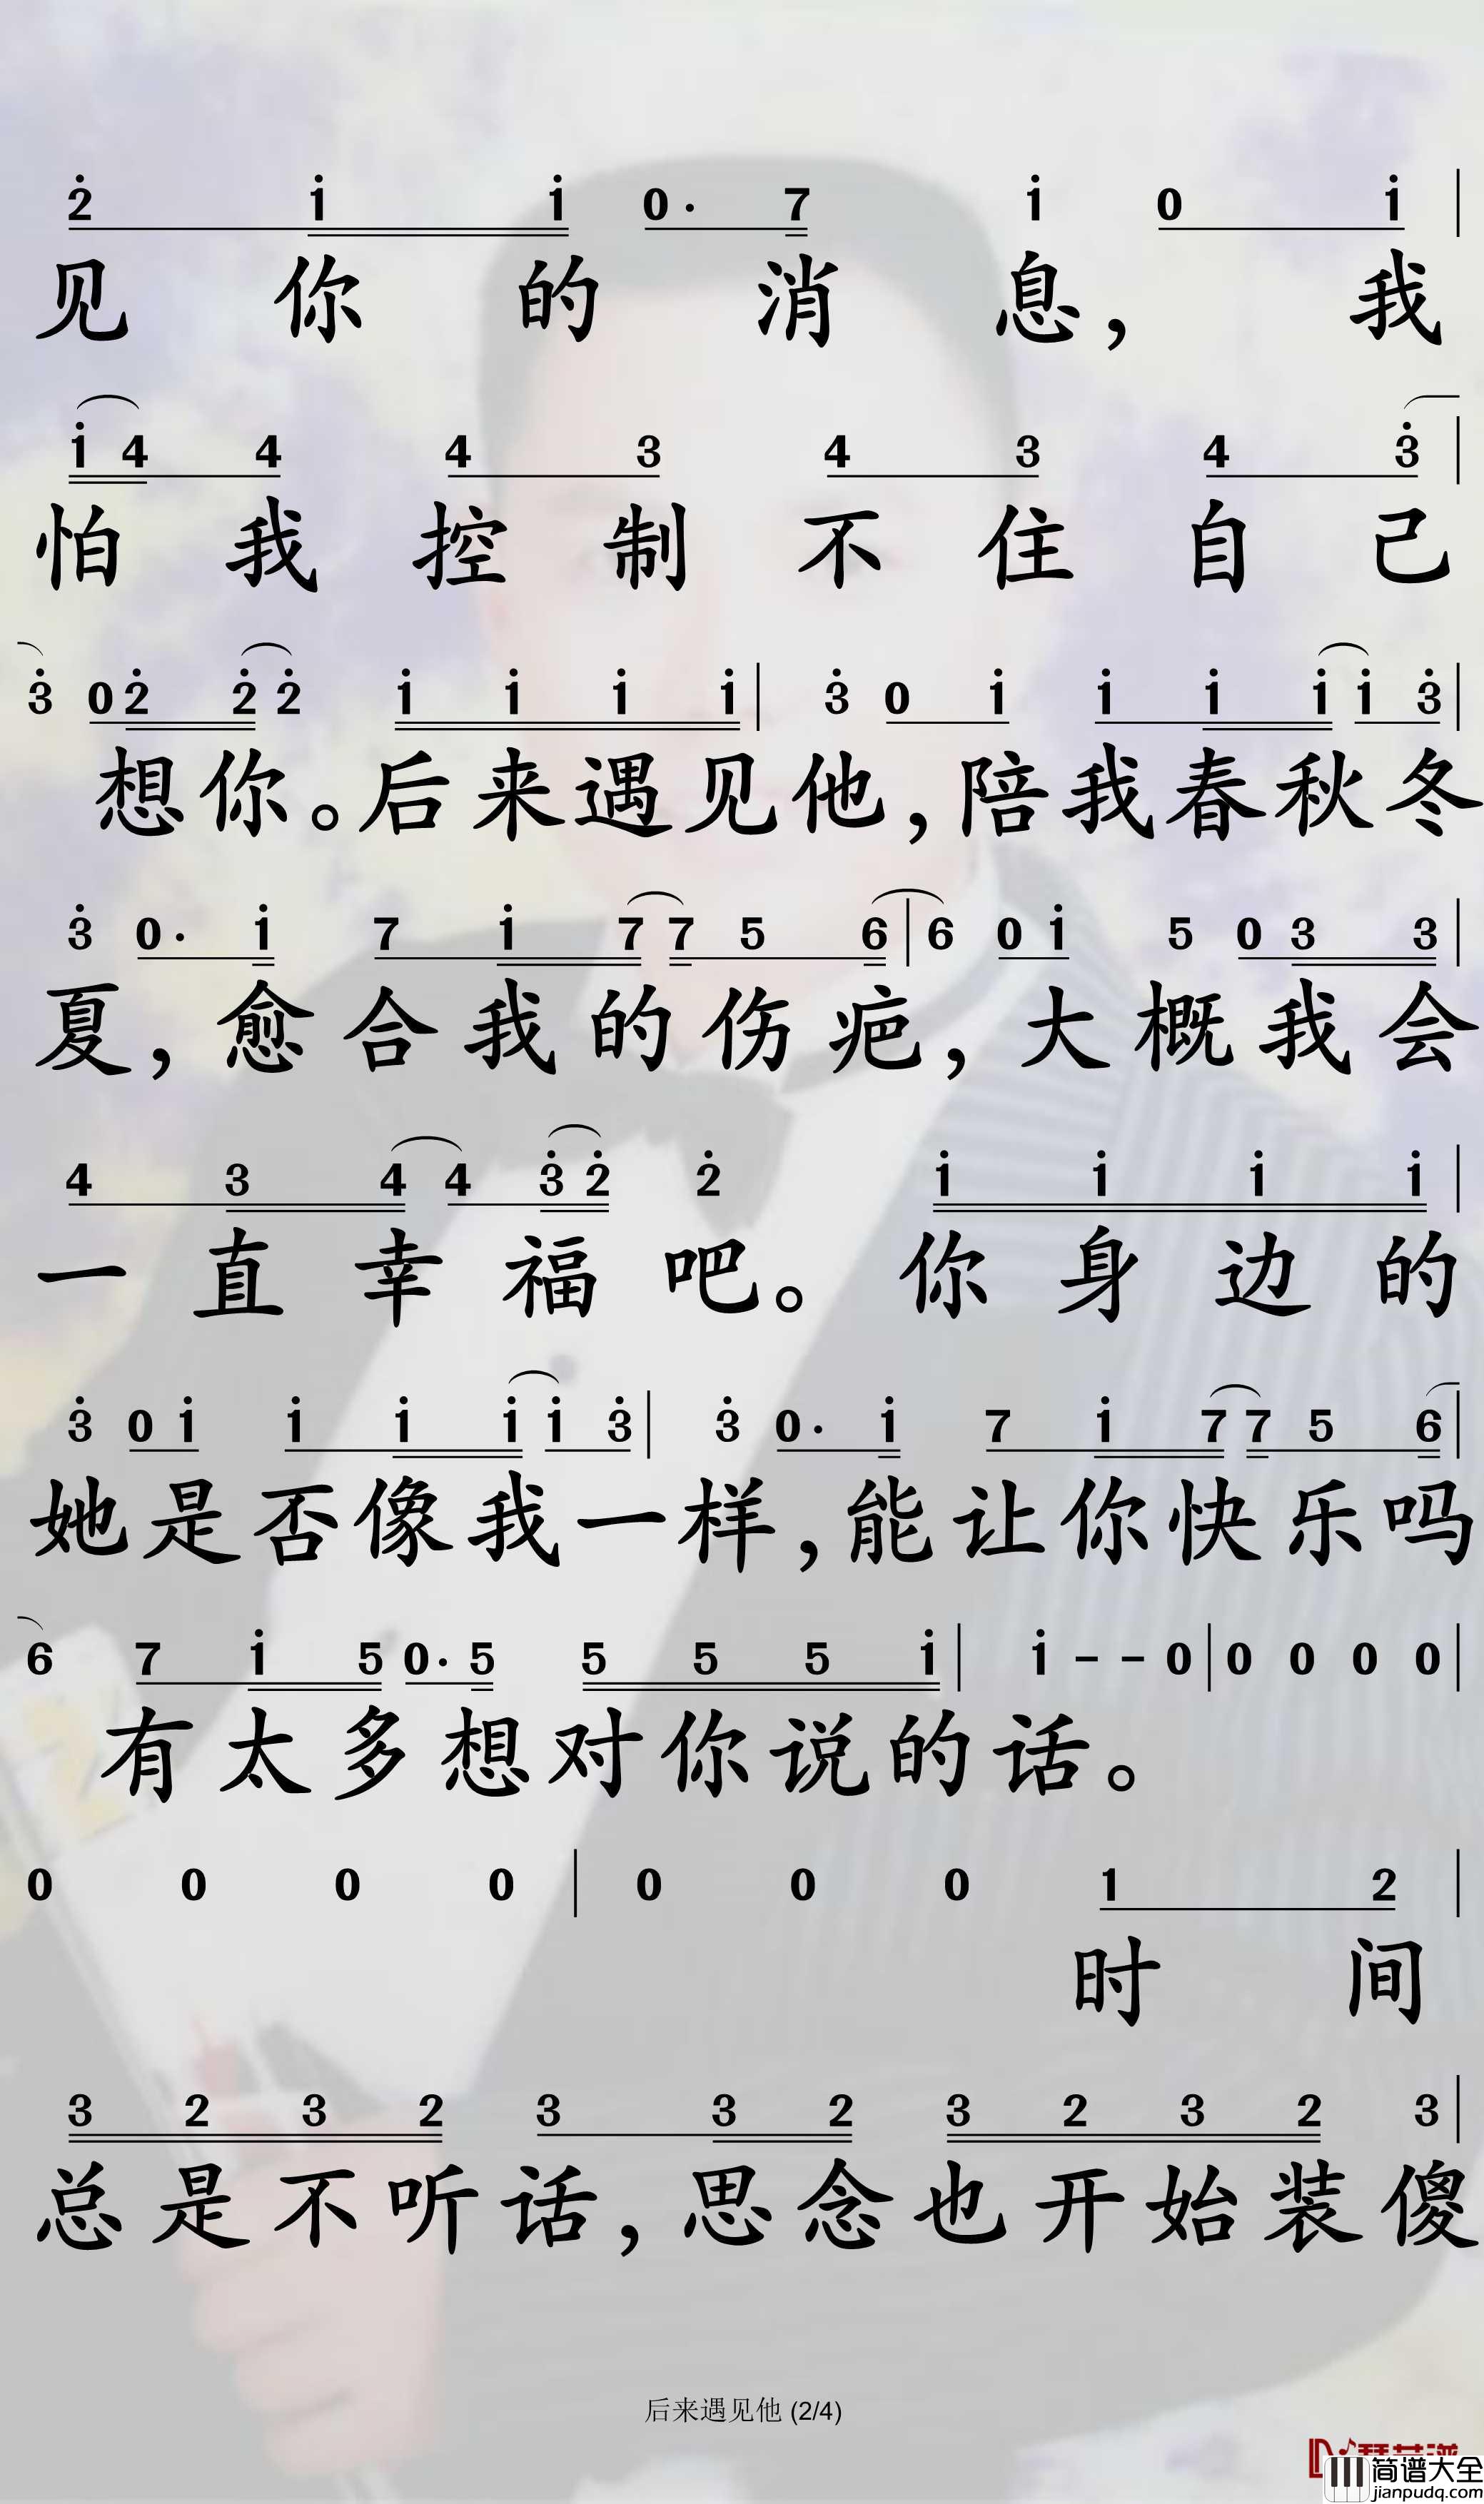 2̇ 1̇ 1̇ 0· 7 1̇ 0 1̇ |
见 你 的 消 息， 我
1̇ 4 4 4 3 4 3 4 3̇ |
怕 我 控 制 不 住 自 己
3̇ 0 2̇ 2̇ 2̇ 1̇ 1̇ 1̇ 1̇ | 3̇ 0 1̇ 1̇ 1̇ 1̇ 1̇ 3̇ |
想 你。后 来 遇 见 他，陪 我 春 秋 冬
3̇ 0· 1̇ 7 1̇ 7 7 5 6 | 6 0 1̇ 5 0 3 3 |
夏，愈 合 我 的 伤 疤，大 概 我 会
4 3 4 4 3̇ 2̇ 2̇ 1̇ 1̇ 1̇ 1̇ |
一 直 幸 福 吧。 你 身 边 的
3̇ 0 1̇ 1̇ 1̇ 1̇ 1̇ 3̇ | 3̇ 0· 1̇ 7 1̇ 7 7 5 6 |
她 是 否 像 我 一 样，能 让 你 快 乐 吗
6 7 1̇ 5 0· 5 5 5 5 1̇ | 1̇ - - 0 | 0 0 0 0 |
有 太 多 想 对 你 说 的 话。
0 0 0 0 | 0 0 0 1 2 |
时 间
3 2 3 2 3 3 2 3 2 3 2 3 |
总 是 不 听 话，思 念 也 开 始 装 傻
后来遇见他 (2/4)
简谱大全
jianpudq.com